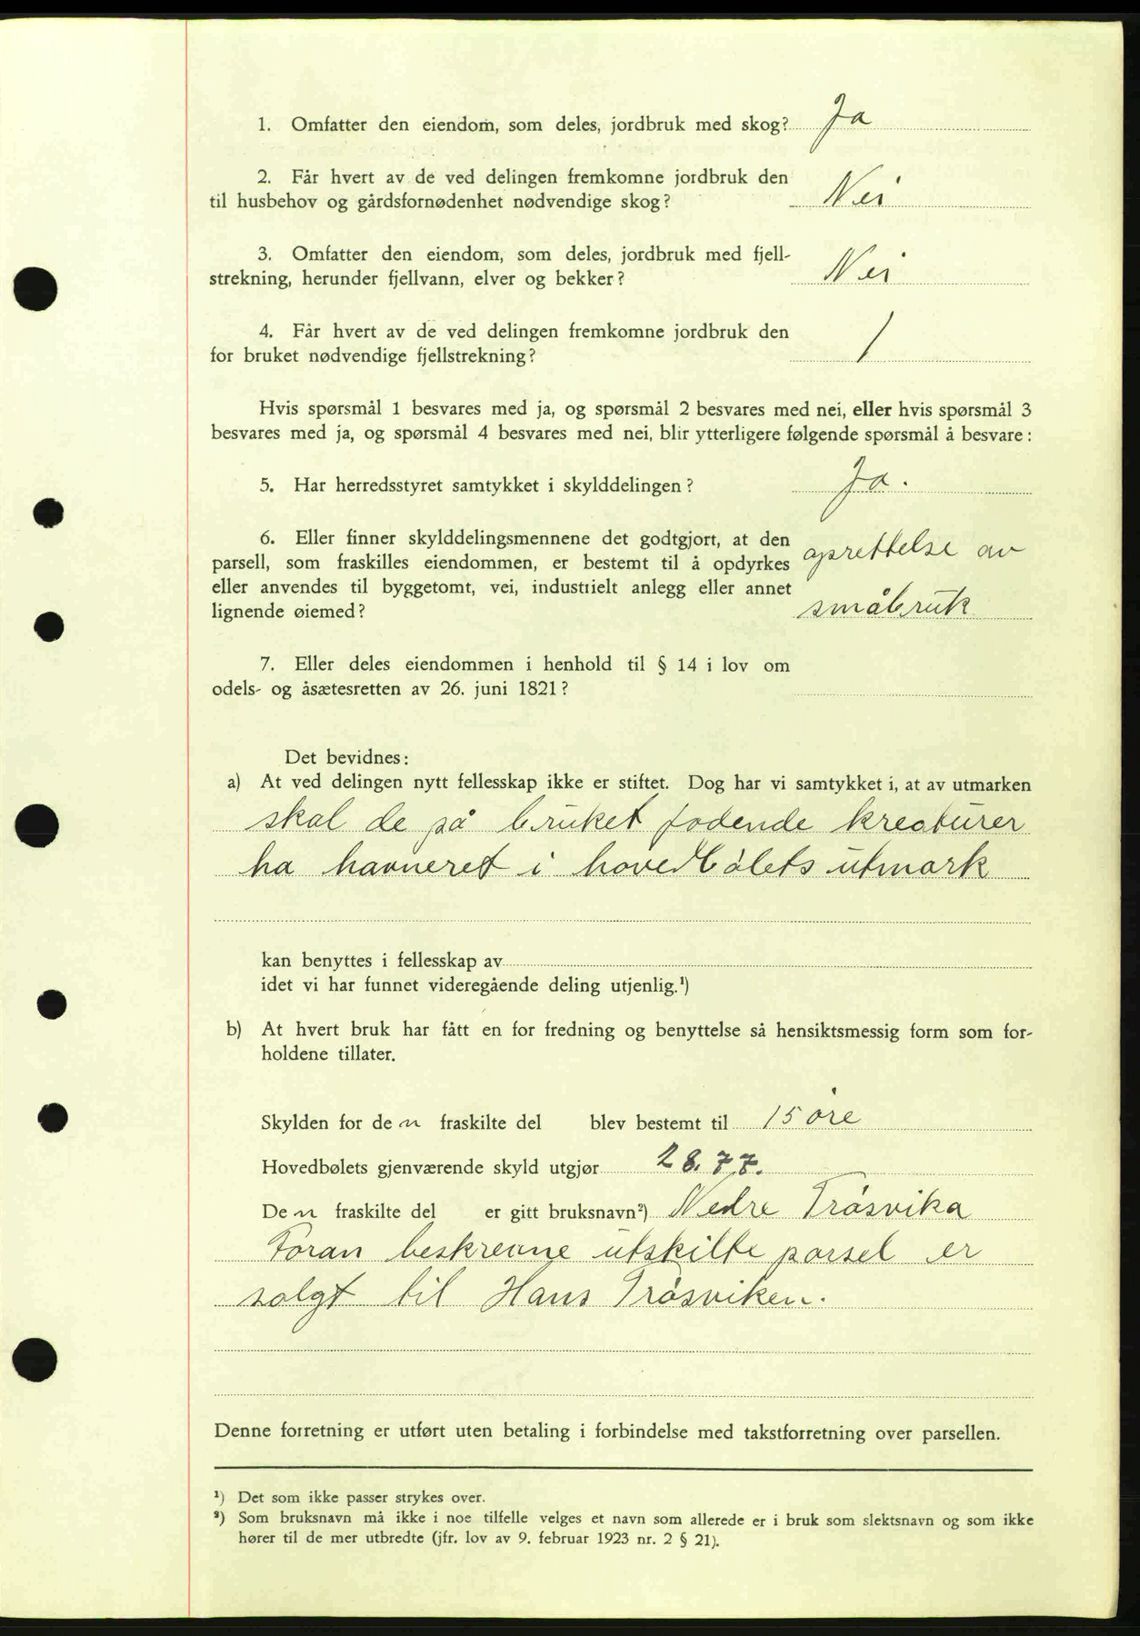 1. Omfatter den eiendom, som deles, jordbruk med skog? Ja
2. Får hvert av de ved delingen fremkomne jordbruk den
til husbehov og gårdsfornødenhet nødvendige skog? Nei
3. Omfatter den eiendom, som deles, jordbruk med fjell-
strekning, herunder fjellvann, elver og bekker? Nei
4. Får hvert av de ved delingen fremkomne jordbruk den
for bruket nødvendige fjellstrekning? /
Hvis spørsmål 1 besvares med ja, og spørsmål 2 besvares med nei, eller hvis spørsmål 3
besvares med ja, og spørsmål 4 besvares med nei, blir ytterligere følgende spørsmål å besvare:
5. Har herredsstyret samtykket i skylddelingen? Ja.
6. Eller finner skylddelingsmennene det godtgjort, at den
parsell, som fraskilles eiendommen, er bestemt til å opdyrkes oprettelse av
eller anvendes til byggetomt, vei, industrielt anlegg eller annet
lignende øiemed? småbruk
7. Eller deles eiendommen i henhold til § 14 i lov om
odels- og åsætesretten av 26. juni 1821?
Det bevidnes:
a) At ved delingen nytt fellesskap ikke er stiftet. Dog har vi samtykket i, at av utmarken
skal de på bruket fødende kreaturer
ha havneret i hovedbølets utmark
kan benyttes i fellesskap av
idet vi har funnet videregående deling utjenlig.¹)
b) At hvert bruk har fått en for fredning og benyttelse så hensiktsmessig form som for-
holdene tillater.
Skylden for den fraskilte del blev bestemt til 15 øre
Hovedbølets gjenværende skyld utgjør 28.77.
Den fraskilte del er gitt bruksnavn²) Nedre Trøsvika
Foran beskrevne utskilte parsel er
solgt til Hans Trøsviken.
Denne forretning er utført uten betaling i forbindelse med takstforretning over parsellen.
¹) Det som ikke passer strykes over.
²) Som bruksnavn må ikke i noe tilfelle velges et navn som allerede er i bruk som slektsnavn og som ikke
hører til de mer utbredte (jfr. lov av 9. februar 1923 nr. 2 § 21).